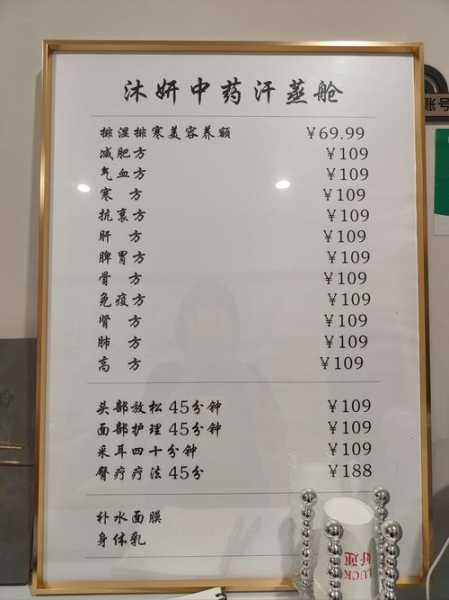 沐妍中药汗蒸舱
排湿排寒美容养颜 ¥69.99
减肥方 ¥109
气血方 ¥109
寒 方 ¥109
抗衰方 ¥109
肝 方 ¥109
脾胃方 ¥109
骨 方 ¥109
免疫方 ¥109
肾 方 ¥109
肺 方 ¥109
高 方 ¥109
头部放松45分钟 ¥109
面部护理45分钟 ¥109
采耳四十分钟 ¥109
臀疗疗法45分 ¥188
补水面膜
身体乳
账号
好运
LUCK